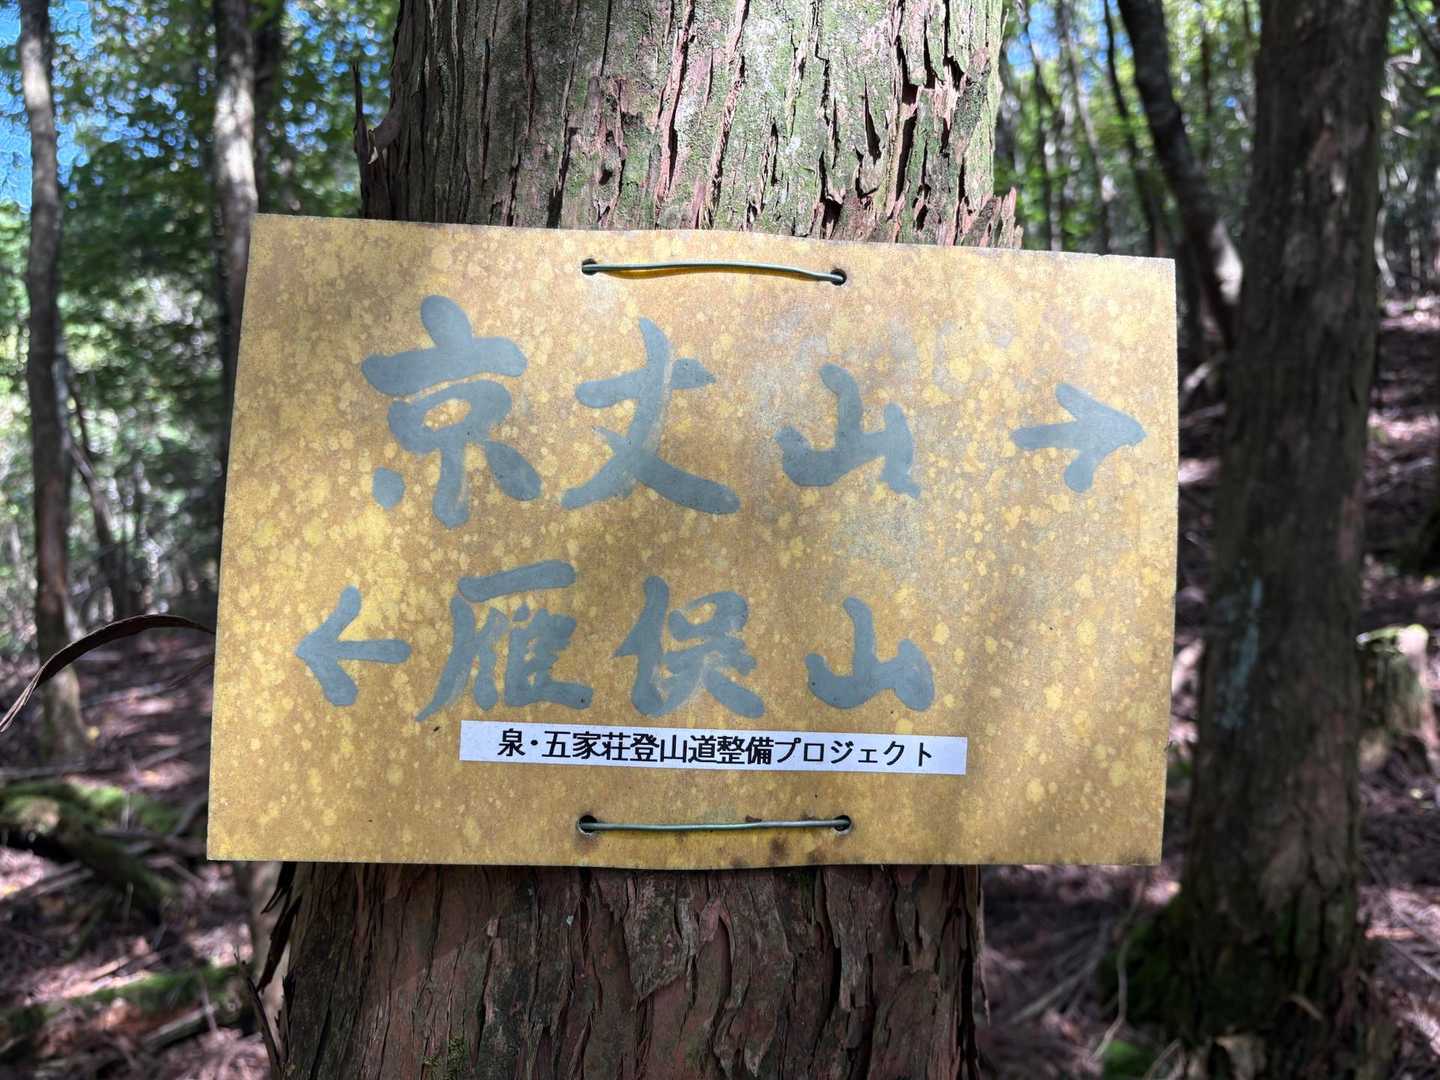 京丈山→
←雁俣山
泉・五家荘登山道整備プロジェクト